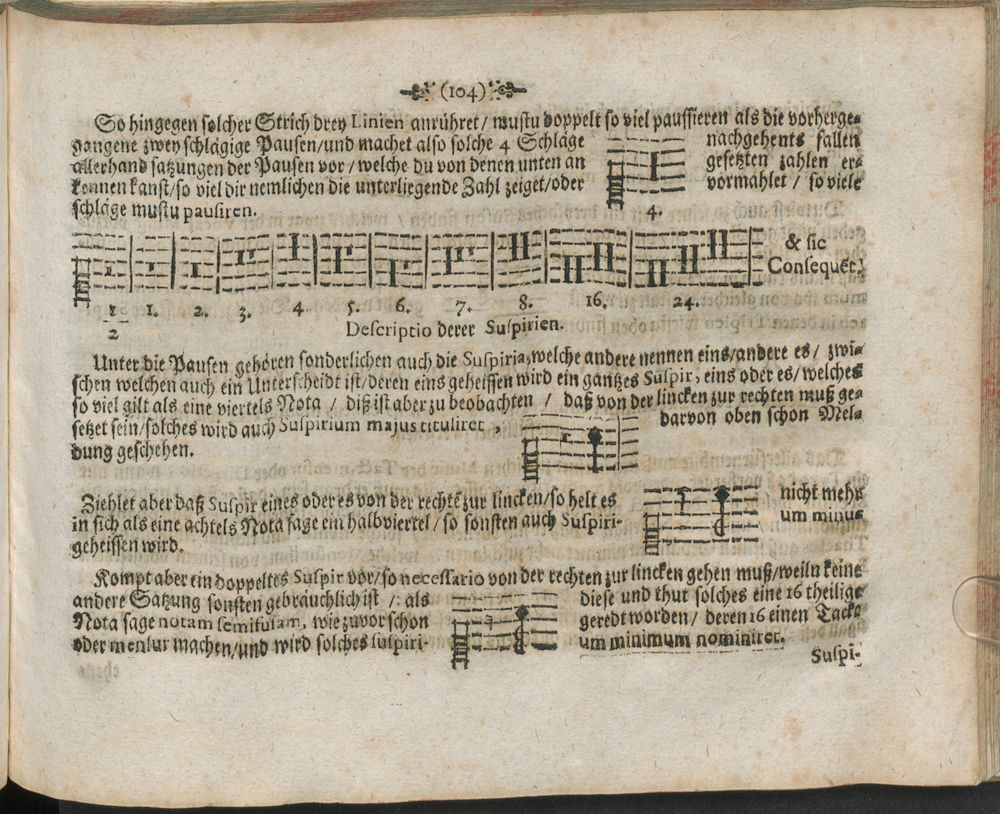 (104)
So hingegen solcher Strich drey Linien anrühret / mustu doppelt so viel pausſieren als die vorherge=
gangene zwey schlägige Pausen/und machet also solche 4 Schläge nachgehents fallen
allerhand satzungen der Pausen vor / welche du von denen unten an gesetzten zahlen er=
kennen kanst/so viel dir nemlichen die unterliegende Zahl zeiget/oder vormahlet / so viele
schläge mustu pausiren. 4.
& sic
Consequēt.
1/2 1. 2. 3. 4. 5. 6. 7. 8. 16. 24.
Descriptio derer Suspirien.
Unter die Pausen gehören sonderlichen auch die Suspiria, welche andere nennen eins/andere es / zwi=
schen welchen auch ein Unterscheidt ist/deren eins geheissen wird ein gantzes Suspir, eins oder es/welches
so viel gilt als eine viertels Nota / diß ist aber zu beobachten / daß von der lincken zur rechten muß ge=
setzet sein/solches wird auch Suspirium majus tituliret , darvon oben schon Mel=
dung geschehen.
Ziehlet aber daß Suspir eines oder es von der rechtē zur lincken/so helt es nicht mehr
in sich als eine achtels Nota sage ein halb viertel / so sonsten auch Suspiri- um minus
geheissen wird.
Kompt aber ein doppeltes Suspir vor/so necessario von der rechten zur lincken gehen muß/weiln keine
andere Satzung sonsten gebräuchlich ist / als diese und thut solches eine 16 theilige
Nota sage notam semifusam, wie zuvor schon geredt worden / deren 16 einen Tackt
oder mensur machen/und wird solches suspiri- um minimum nominiret.
Suspi-